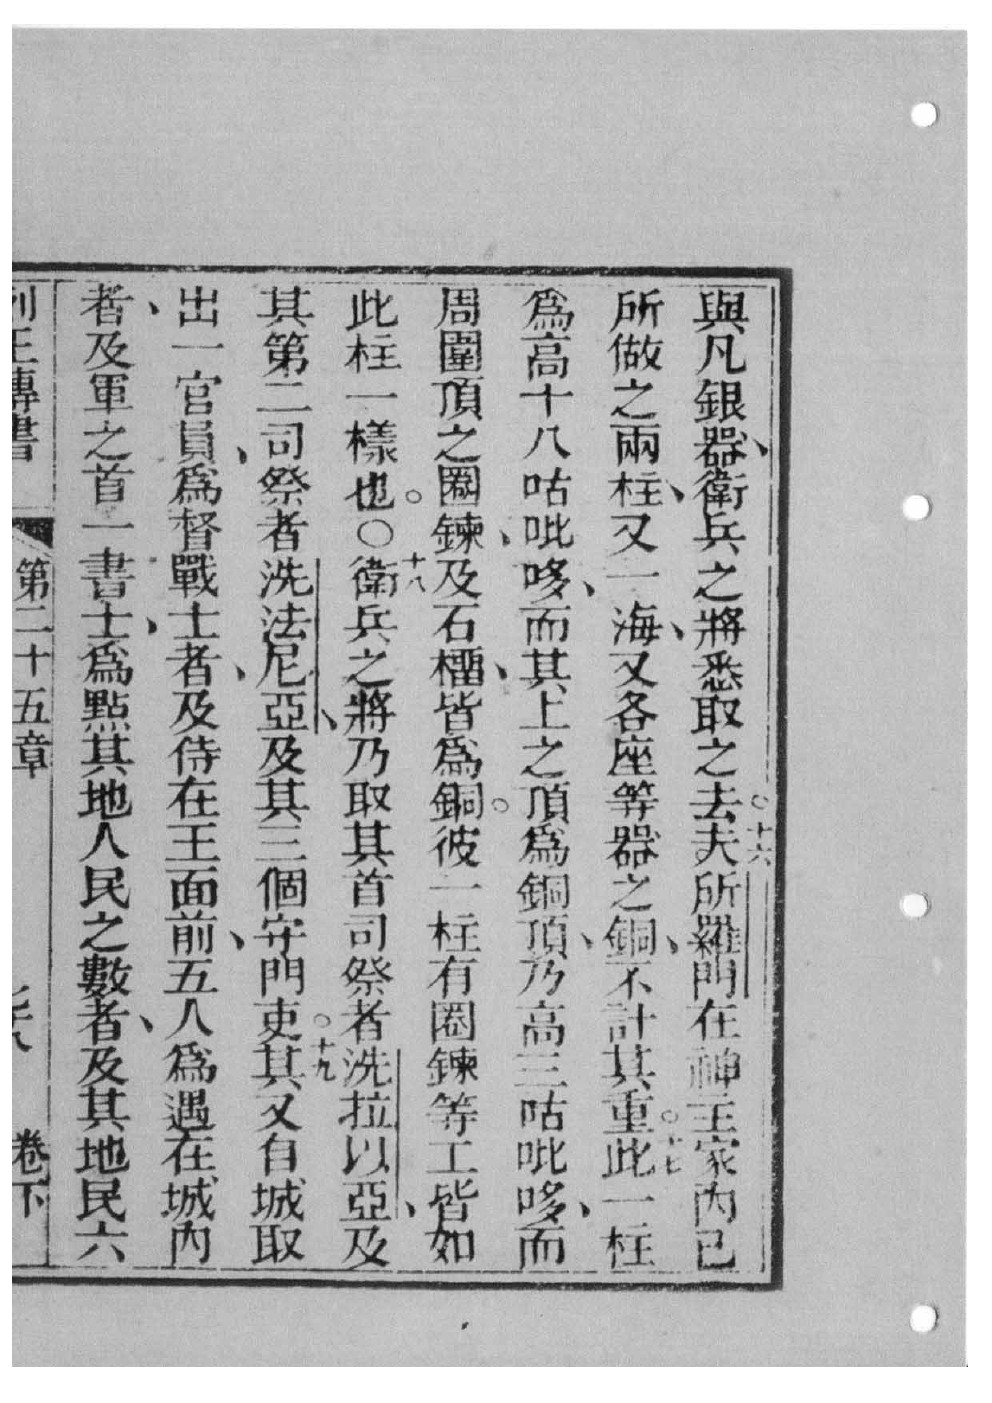 與凡銀器、衛兵之將悉取之去。十六夫所羅門在神主家內已
所做之兩柱、又一海、又各座等器之銅、不計其重。十七此一柱
爲高十八咕吡哆、而其上之頂爲銅頂、乃高三咕吡哆、而
周圍頂之圈鍊、及石榴、皆爲銅。彼一柱有圈鍊等工皆如
此柱一樣也。○十八衛兵之將乃取其首司祭者洗拉以亞、及
其第二司祭者洗法尼亞、及其三個守門吏。十九其又自城取
出一官員、爲督戰士者、及侍在王面前、五人爲遇在城內
者、及軍之首一書士、爲點其地人民之數者、及其地民六
列王傳書 第二十五章 七十八 卷下